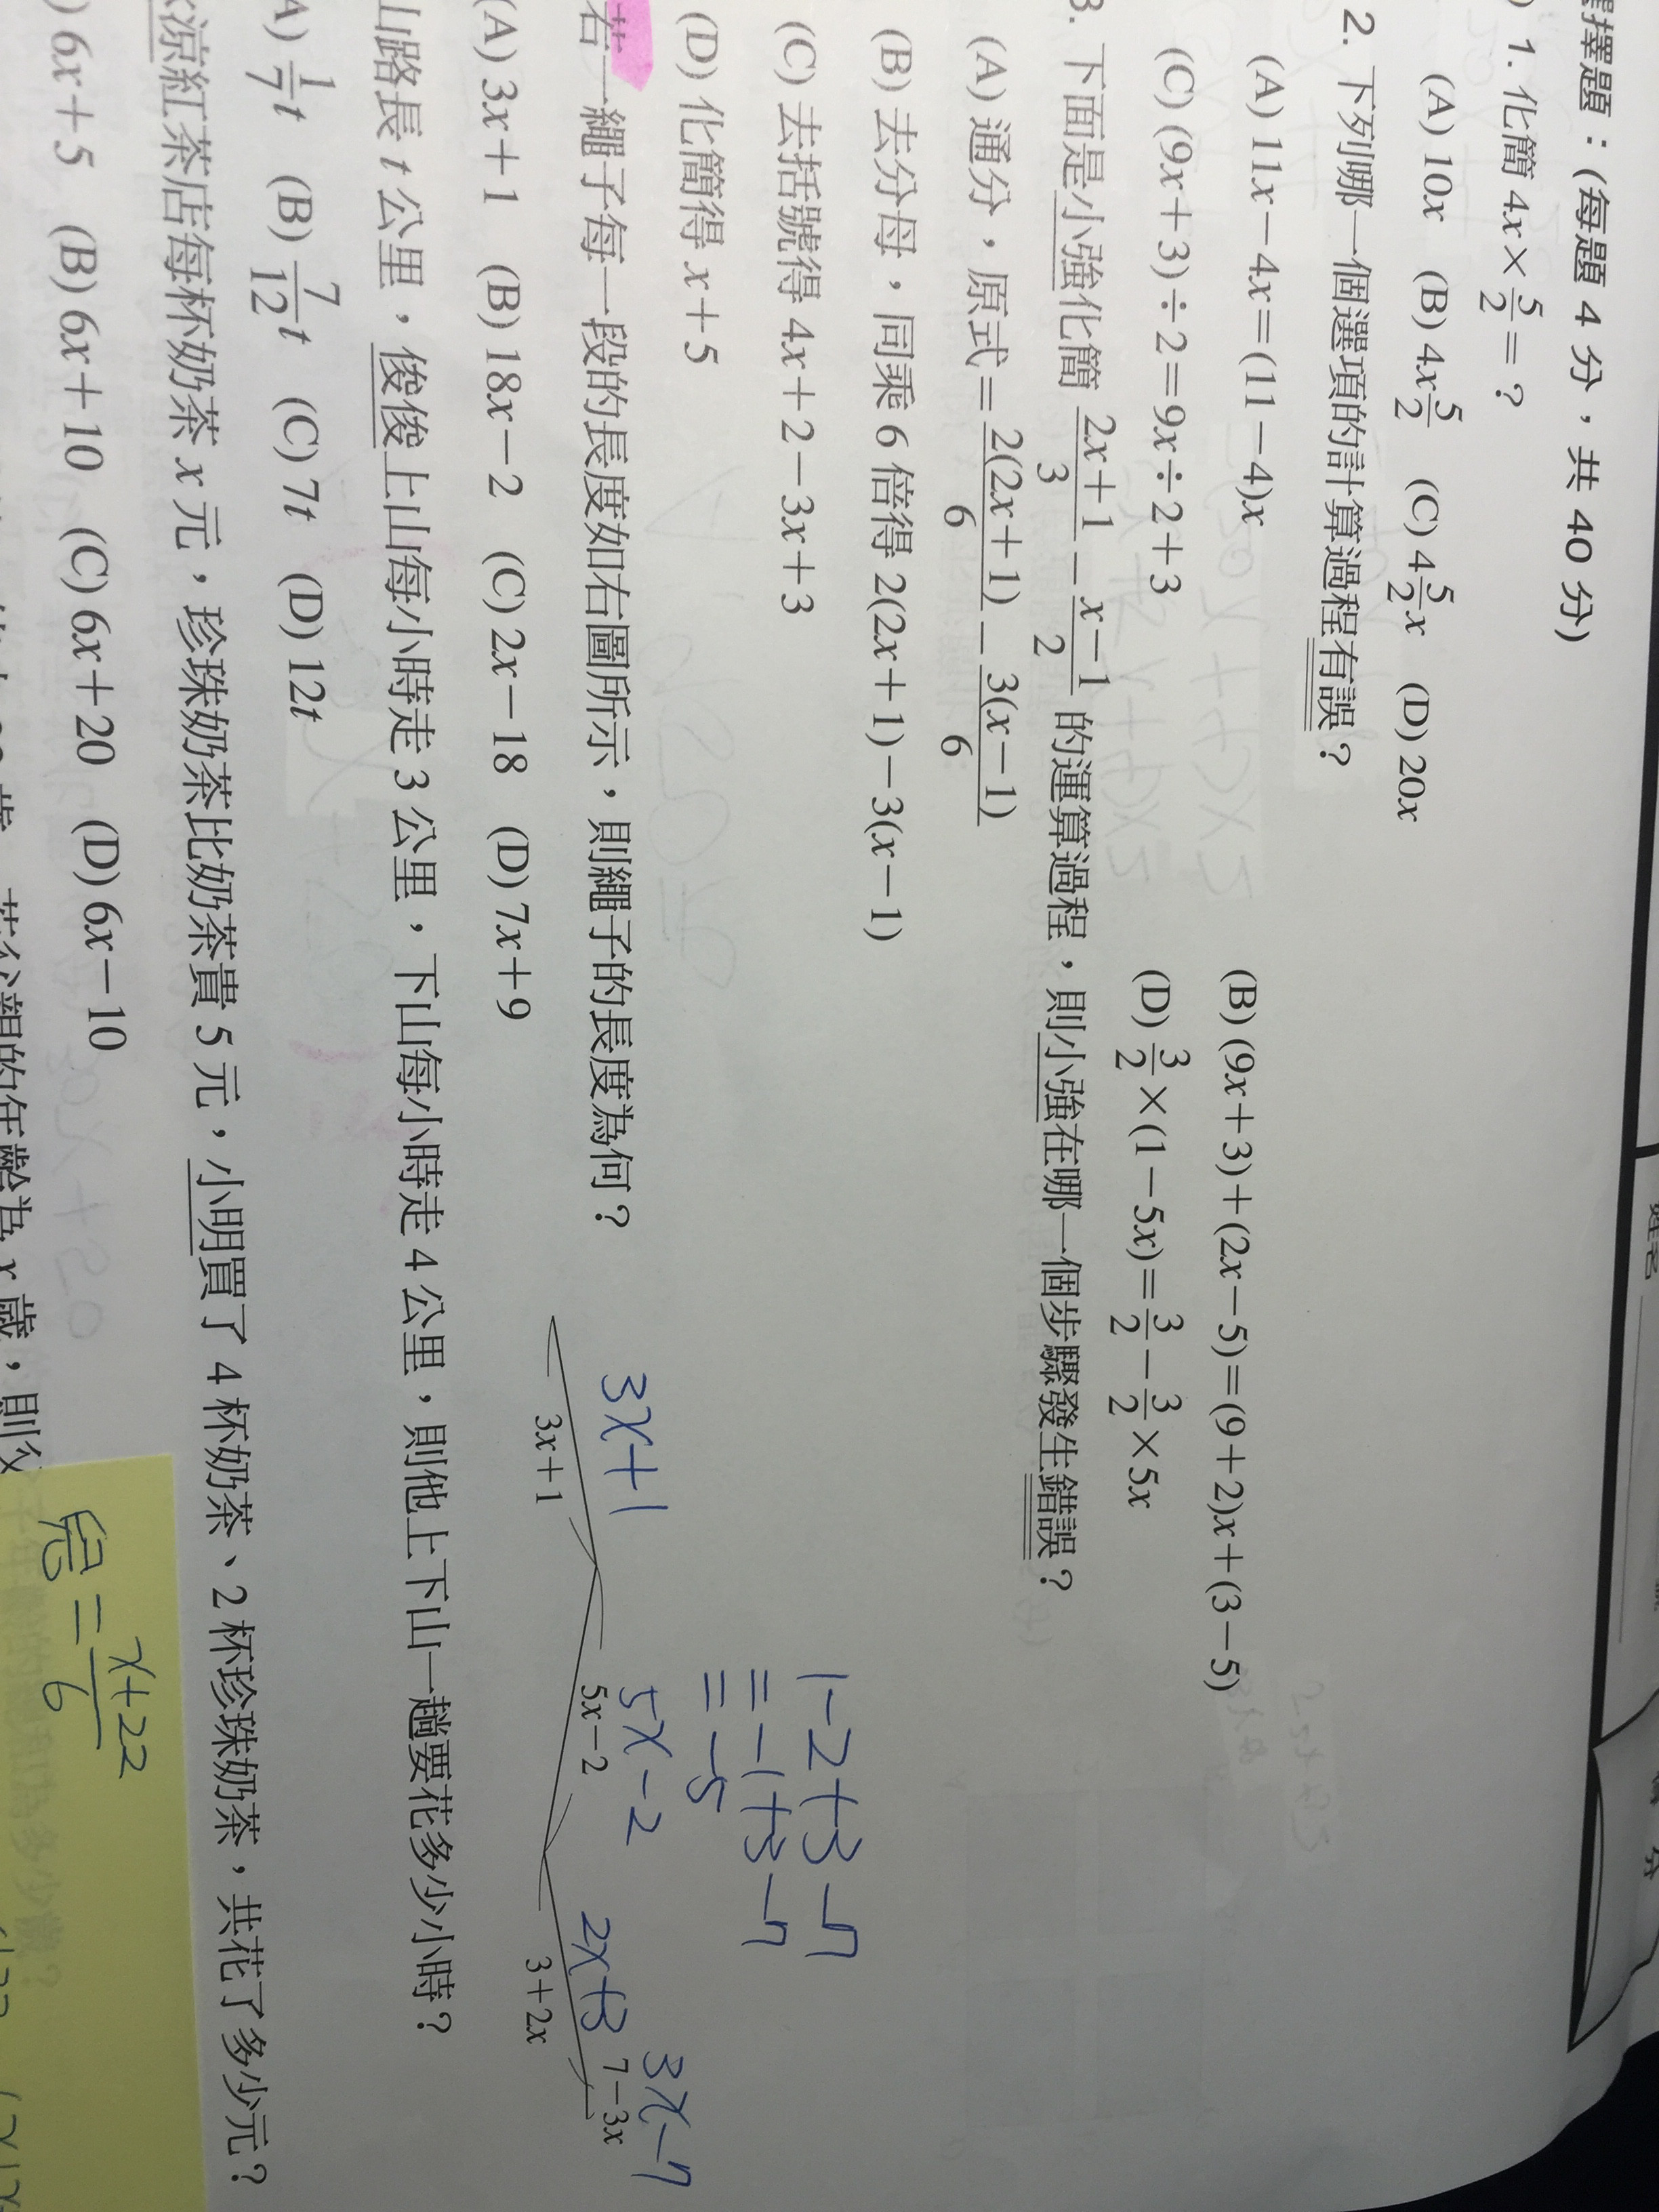 擇題：(每題 4 分，共 40 分)
) 1. 化簡 4x×5/2=？
(A) 10x (B) 4x5/2 (C) 4 5/2x (D) 20x
2. 下列哪一個選項的計算過程有誤？
(A) 11x−4x=(11−4)x (B) (9x+3)+(2x−5)=(9+2)x+(3−5)
(C) (9x+3)÷2=9x÷2+3 (D) 3/2×(1−5x)=3/2−3/2×5x
3. 下面是小強化簡 (2x+1)/3 − (x−1)/2 的運算過程，則小強在哪一個步驟發生錯誤？
(A) 通分，原式=2(2x+1)/6 − 3(x−1)/6
(B) 去分母，同乘 6 倍得 2(2x+1)−3(x−1)
(C) 去括號得 4x+2−3x+3
(D) 化簡得 x+5
1-2+3-7
=-1+3-7
=-5
若一繩子每一段的長度如右圖所示，則繩子的長度為何？
3x+1 5x-2 2x+3 3x-7
3x+1 5x−2 3+2x 7−3x
(A) 3x+1 (B) 18x−2 (C) 2x−18 (D) 7x+9
山路長 t 公里，俊俊上山每小時走 3 公里，下山每小時走 4 公里，則他上下山一趟要花多少小時？
A) 1/7t (B) 7/12t (C) 7t (D) 12t
涼紅茶店每杯奶茶 x 元，珍珠奶茶比奶茶貴 5 元，小明買了 4 杯奶茶、2 杯珍珠奶茶，共花了多少元？
) 6x+5 (B) 6x+10 (C) 6x+20 (D) 6x−10
的年齡為 x 歲，則父
=(x+22)/6